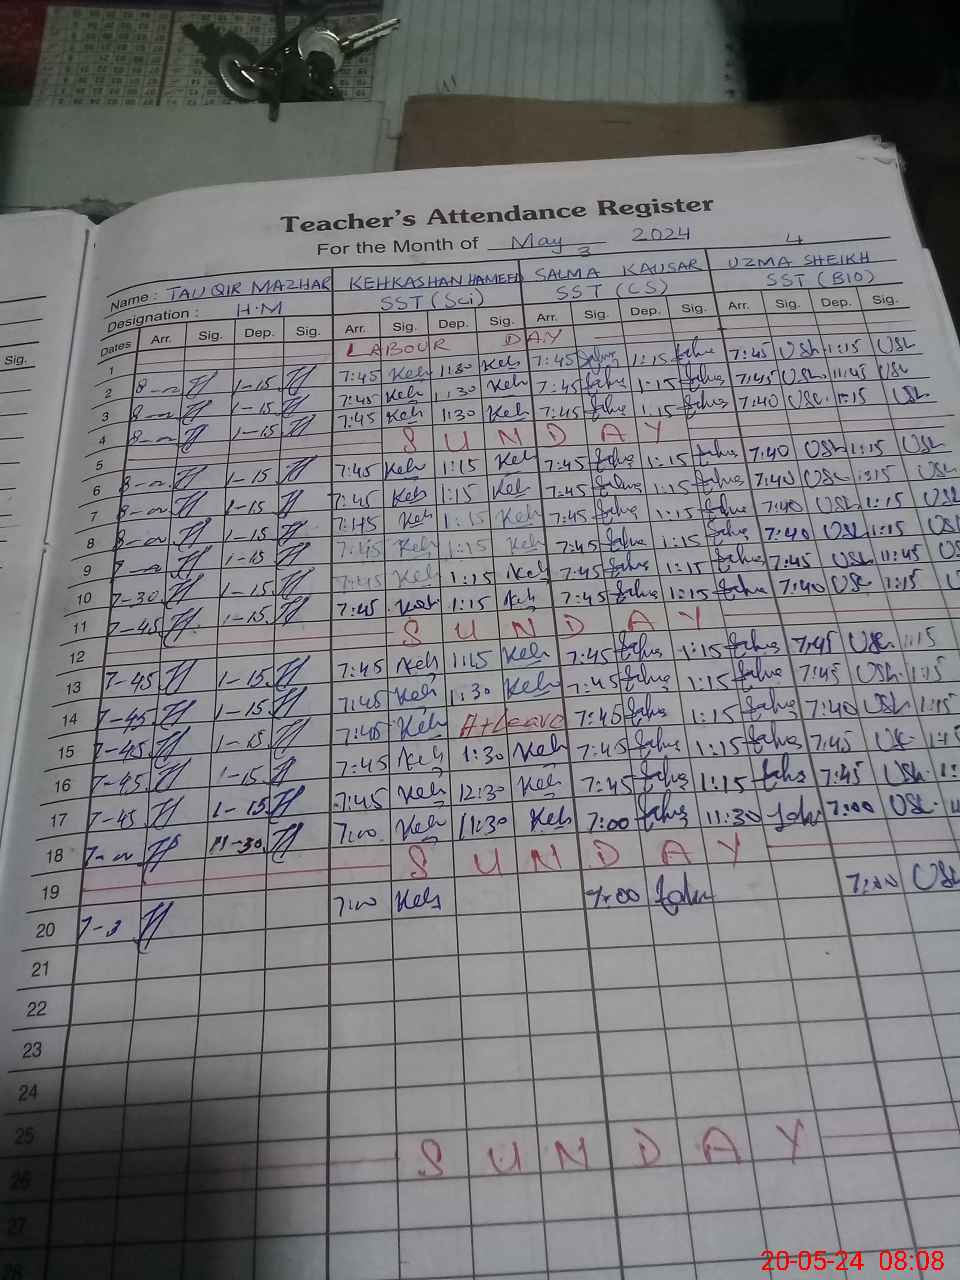 Teacher's Attendance Register
For the Month of May 2024
3 4
Name : TAUQIR MAZHAR KEHKASHAN HAMEED SALMA KAUSAR UZMA SHEIKH
Designation : H.M SST (Sci) SST (CS) SST (BIO)
Dates Arr. Sig. Dep. Sig. Arr. Sig. Dep. Sig. Arr. Sig. Dep. Sig. Arr. Sig. Dep. Sig.
Sig.
1 LABOUR DAY
2 1-15 7:45 Keh 1:30 Keh 7:45 1:15 7:45 USh 1:15 USh
3 1-15 7:45 Keh 1:30 Keh 7:45 1:15 7:45 USh 11:45 USh
4 1-15 7:45 Keh 1:30 Keh 7:45 1:15 7:40 USh 1:15 USh
5 SUNDAY
6 1-15 7:45 Keh 1:15 Keh 7:45 1:15 7:40 USh 1:15 USh
7 1-15 7:45 Keh 1:15 Keh 7:45 1:15 7:40 USh 1:15 USh
8 1-15 7:45 Keh 1:15 Keh 7:45 1:15 7:40 USh 1:15 USh
9 1-15 7:45 Keh 1:15 Keh 7:45 1:15 7:40 USh 1:15
10 7-30 1-15 7:45 Keh 1:15 Keh 7:45 1:15 7:45 USh 11:45
11 7-45 1-15 7:45 Keh 1:15 Keh 7:45 1:15 7:40 USh 1:15
12 SUNDAY
13 7-45 1-15 7:45 Keh 1:15 Keh 7:45 1:15 7:45 USh 1:15
14 7-45 1-15 7:45 Keh 1:30 Keh 7:45 1:15 7:45 USh 1:15
15 7-45 1-15 7:45 Keh Leave 7:45 1:15 7:40 USh 1:15
16 7-45 1-15 7:45 Keh 1:30 Keh 7:45 1:15 7:45 USh
17 7-45 1-15 7:45 Keh 12:30 Keh 7:45 1:15 7:45 USh
18 11-30 7:00 Keh 11:30 Keh 7:00 11:30 7:00 USh
19 SUNDAY
20 7:00 Keh 7:00 7:00 USh
21
22
23
24
25
26 SUNDAY
27
28
20-05-24 08:08